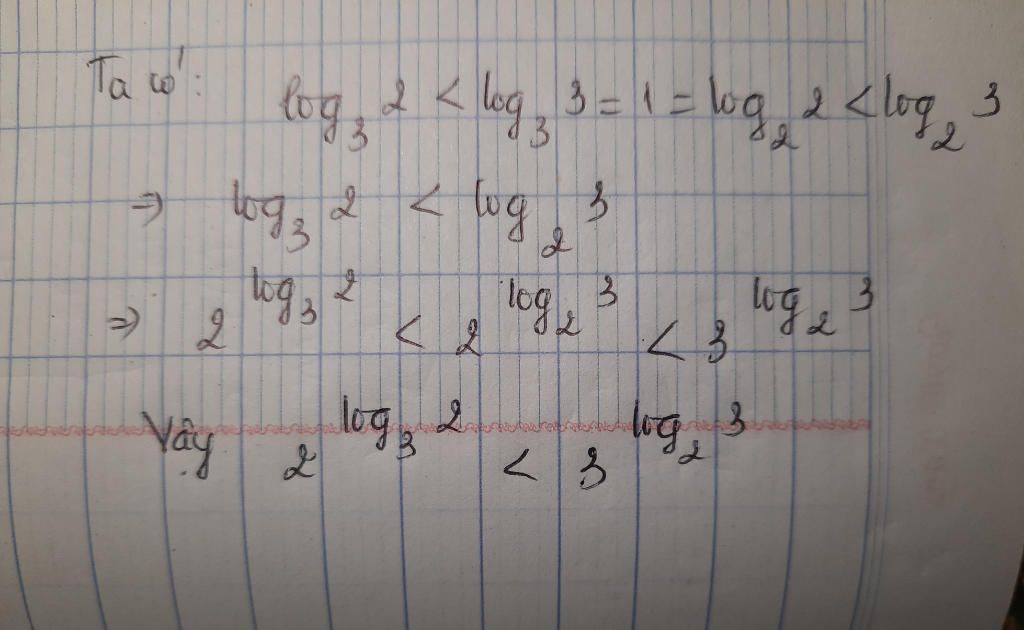 Ta có: log₃ 2 < log₃ 3 = 1 = log₂ 2 < log₂ 3
⇒ log₃ 2 < log₂ 3
⇒ 2^(log₃ 2) < 2^(log₂ 3) < 3^(log₂ 3)
Vậy 2^(log₃ 2) < 3^(log₂ 3)